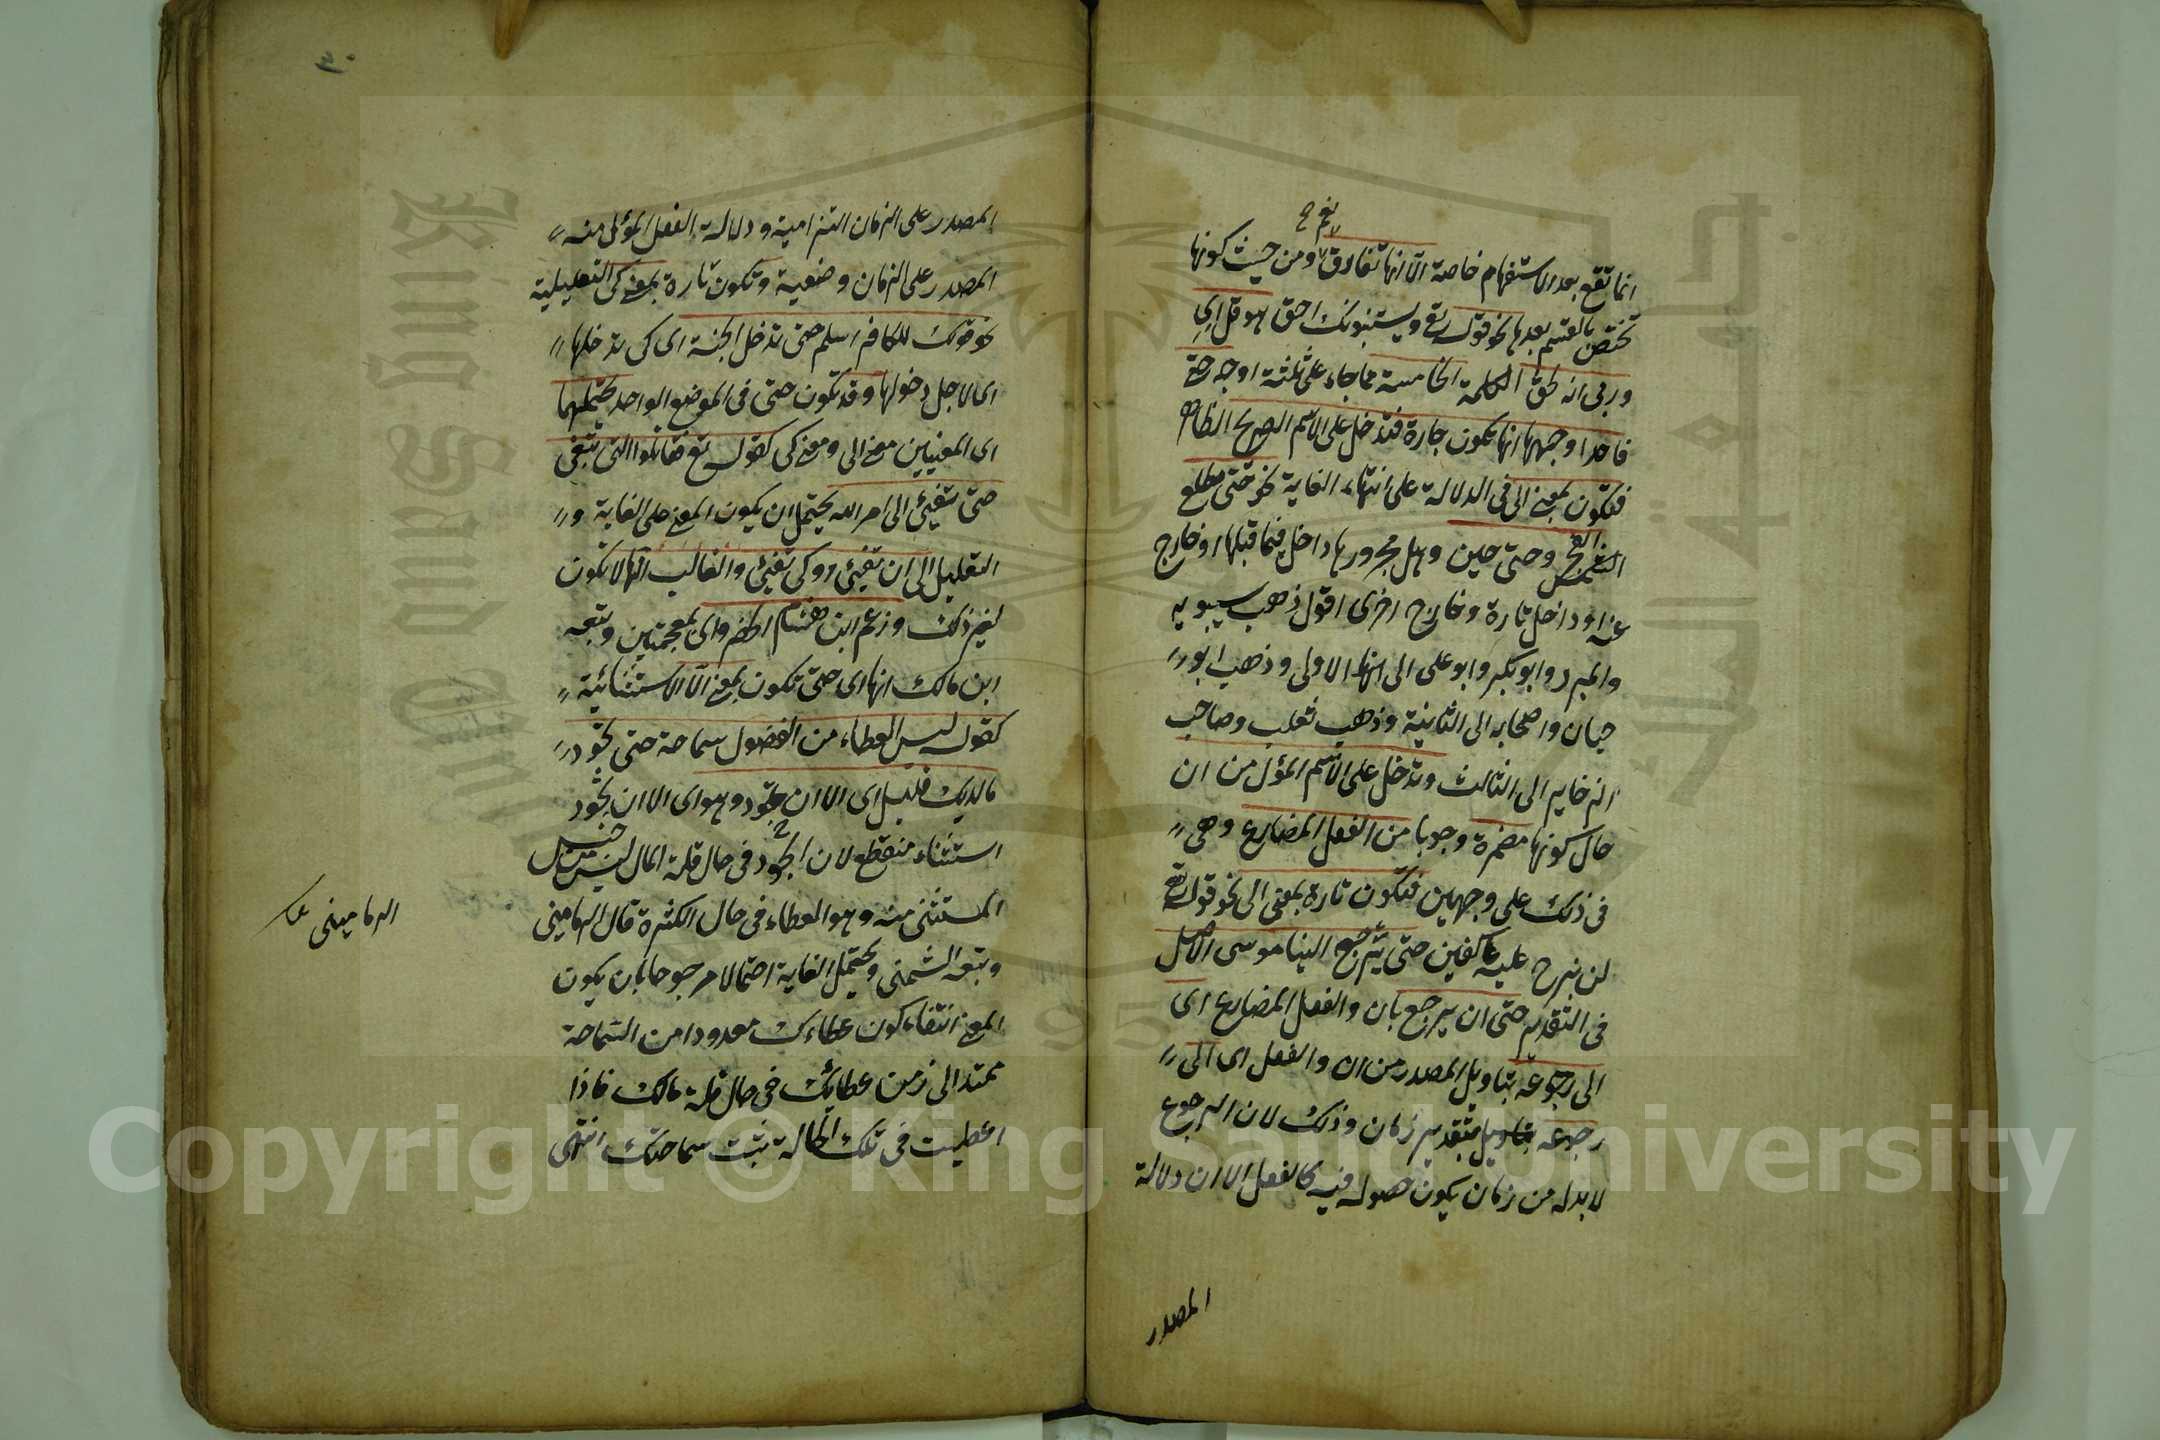 نعم ح
انما تقع بعد الاستفهام خاصة الا انها تفارق لا ومن حيث كونها
تختص بالقسم بعدها نحو قوله تع ويستنبؤنك احق هو قل اي
وربي انه لحق الكلمة الخامسة مما جاء على ثلثة اوجه حتى
فاحد اوجهها انها تكون جارة فتدخل على الاسم الصريح الظاهر
فتكون بمعنى الى في الدلالة على انتهاء الغاية نحو حتى مطلع
الفجر وحتى حين وهل مجرورها داخل فيما قبلها او خارج
عنه او داخل تارة وخارج اخرى اقول ذهب سيبويه
والمبرد وابو بكر وابو على الى انها الاولى وذهب ابو
حيان واصحابه الى الثانية وذهب ثعلب وصاحب
الذخاير الى الثالث وتدخل على الاسم المؤل من ان
حال كونها مضمرة وجوبا من الفعل المضارع وهي
في ذلك على وجهين فتكون تارة بمعنى الى نحو قوله تع
لن نبرح عليه عاكفين حتى يرجع الينا موسى الاصل
في التقدير حتى ان يرجع بان والفعل المضارع اى
الى رجوعه بتاويل المصدر من ان والفعل اى الى
رجوعه بتقدير زمان وذلك لان الرجوع
لا بد له من زمان يكون حصوله فيه كالفعل الا ان دلالة
المصدر
٣٠
المصدر على الزمان التزامية ودلالة الفعل المؤل منه
المصدر على الزمان وضعية وتكون تارة بمعنى كى التعليلية
نحو قولك للكافر اسلم حتى تدخل الجنة اى كى تدخلها
اى لاجل دخولها وقد تكون حتى في الموضع الواحد تحتملهما
اى المعنيين معنى الى ومعنى كى كقوله تع فقاتلوا التى تبغى
حتى تفئ الى امر الله يحتمل ان يكون المعنى على الغاية و
التعليل الى ان تفئ او كى تفئ والغالب انها لا تكون
لغير ذلك وزعم ابن هشام الخضراوى بمعجمتين وتبعه
ابن مالك انها اى حتى تكون بمعنى الا الاستثنائية
كقوله ليس العطاء من الفضول سماحة حتى تجود
مالديك قليل اى الا ان تجود وهو اى الا ان تجود
استثناء منقطع لان الجود في حال قلة المال ليس من جنس
المستثنى منه وهو العطاء في حال الكثرة قال الدمامينى
وتبعه الشمنى ويحتمل الغاية احتمالا مرجوحا بان يكون
المعنى انتفاء كون عطاءك معدودا من السماحة
ممتد الى زمن عطائك في حال قلة مالك فاذا
اعطيت في تلك الحالة ثبتت سماحتك انتهى
الدمامينى
Copyright © King Saud University